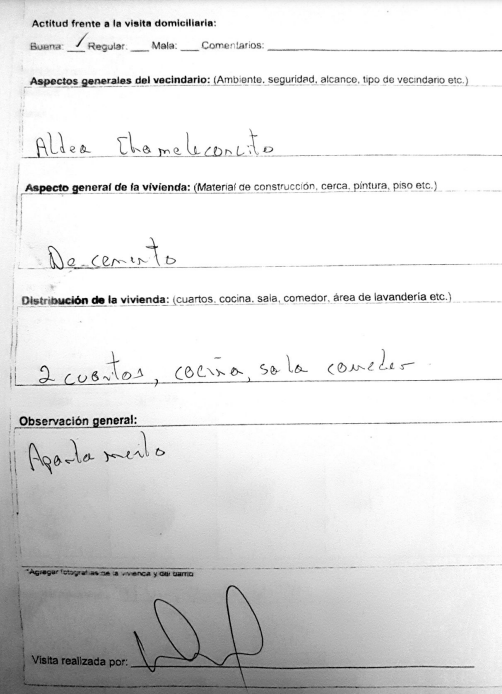 Actitud frente a la visita domiciliaria:
Buena: ✓ Regular: ___ Mala: ___ Comentarios: ___
Aspectos generales del vecindario: (Ambiente, seguridad, alcance, tipo de vecindario etc.)
Aldea Chameleconcito
Aspecto general de la vivienda: (Material de construcción, cerca, pintura, piso etc.)
De cemento
Distribución de la vivienda: (cuartos, cocina, sala, comedor, área de lavandería etc.)
2 cuartos, cocina, sala comedor
Observación general:
Apartamento
*Agregar fotografías de la vivienda y del barrio
Visita realizada por: